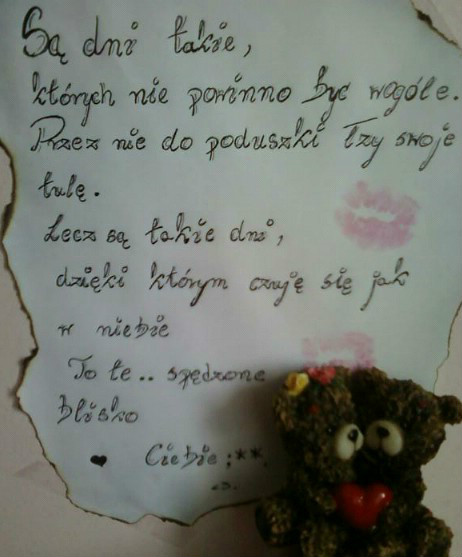 Są dni takie,
których nie powinno być wogóle.
Przez nie do poduszki łzy swoje
tulę.
Lecz są takie dni,
dzięki którym czuję się jak
w niebie
To te.. spędzone
blisko
♥ Ciebie ;**.
<3.